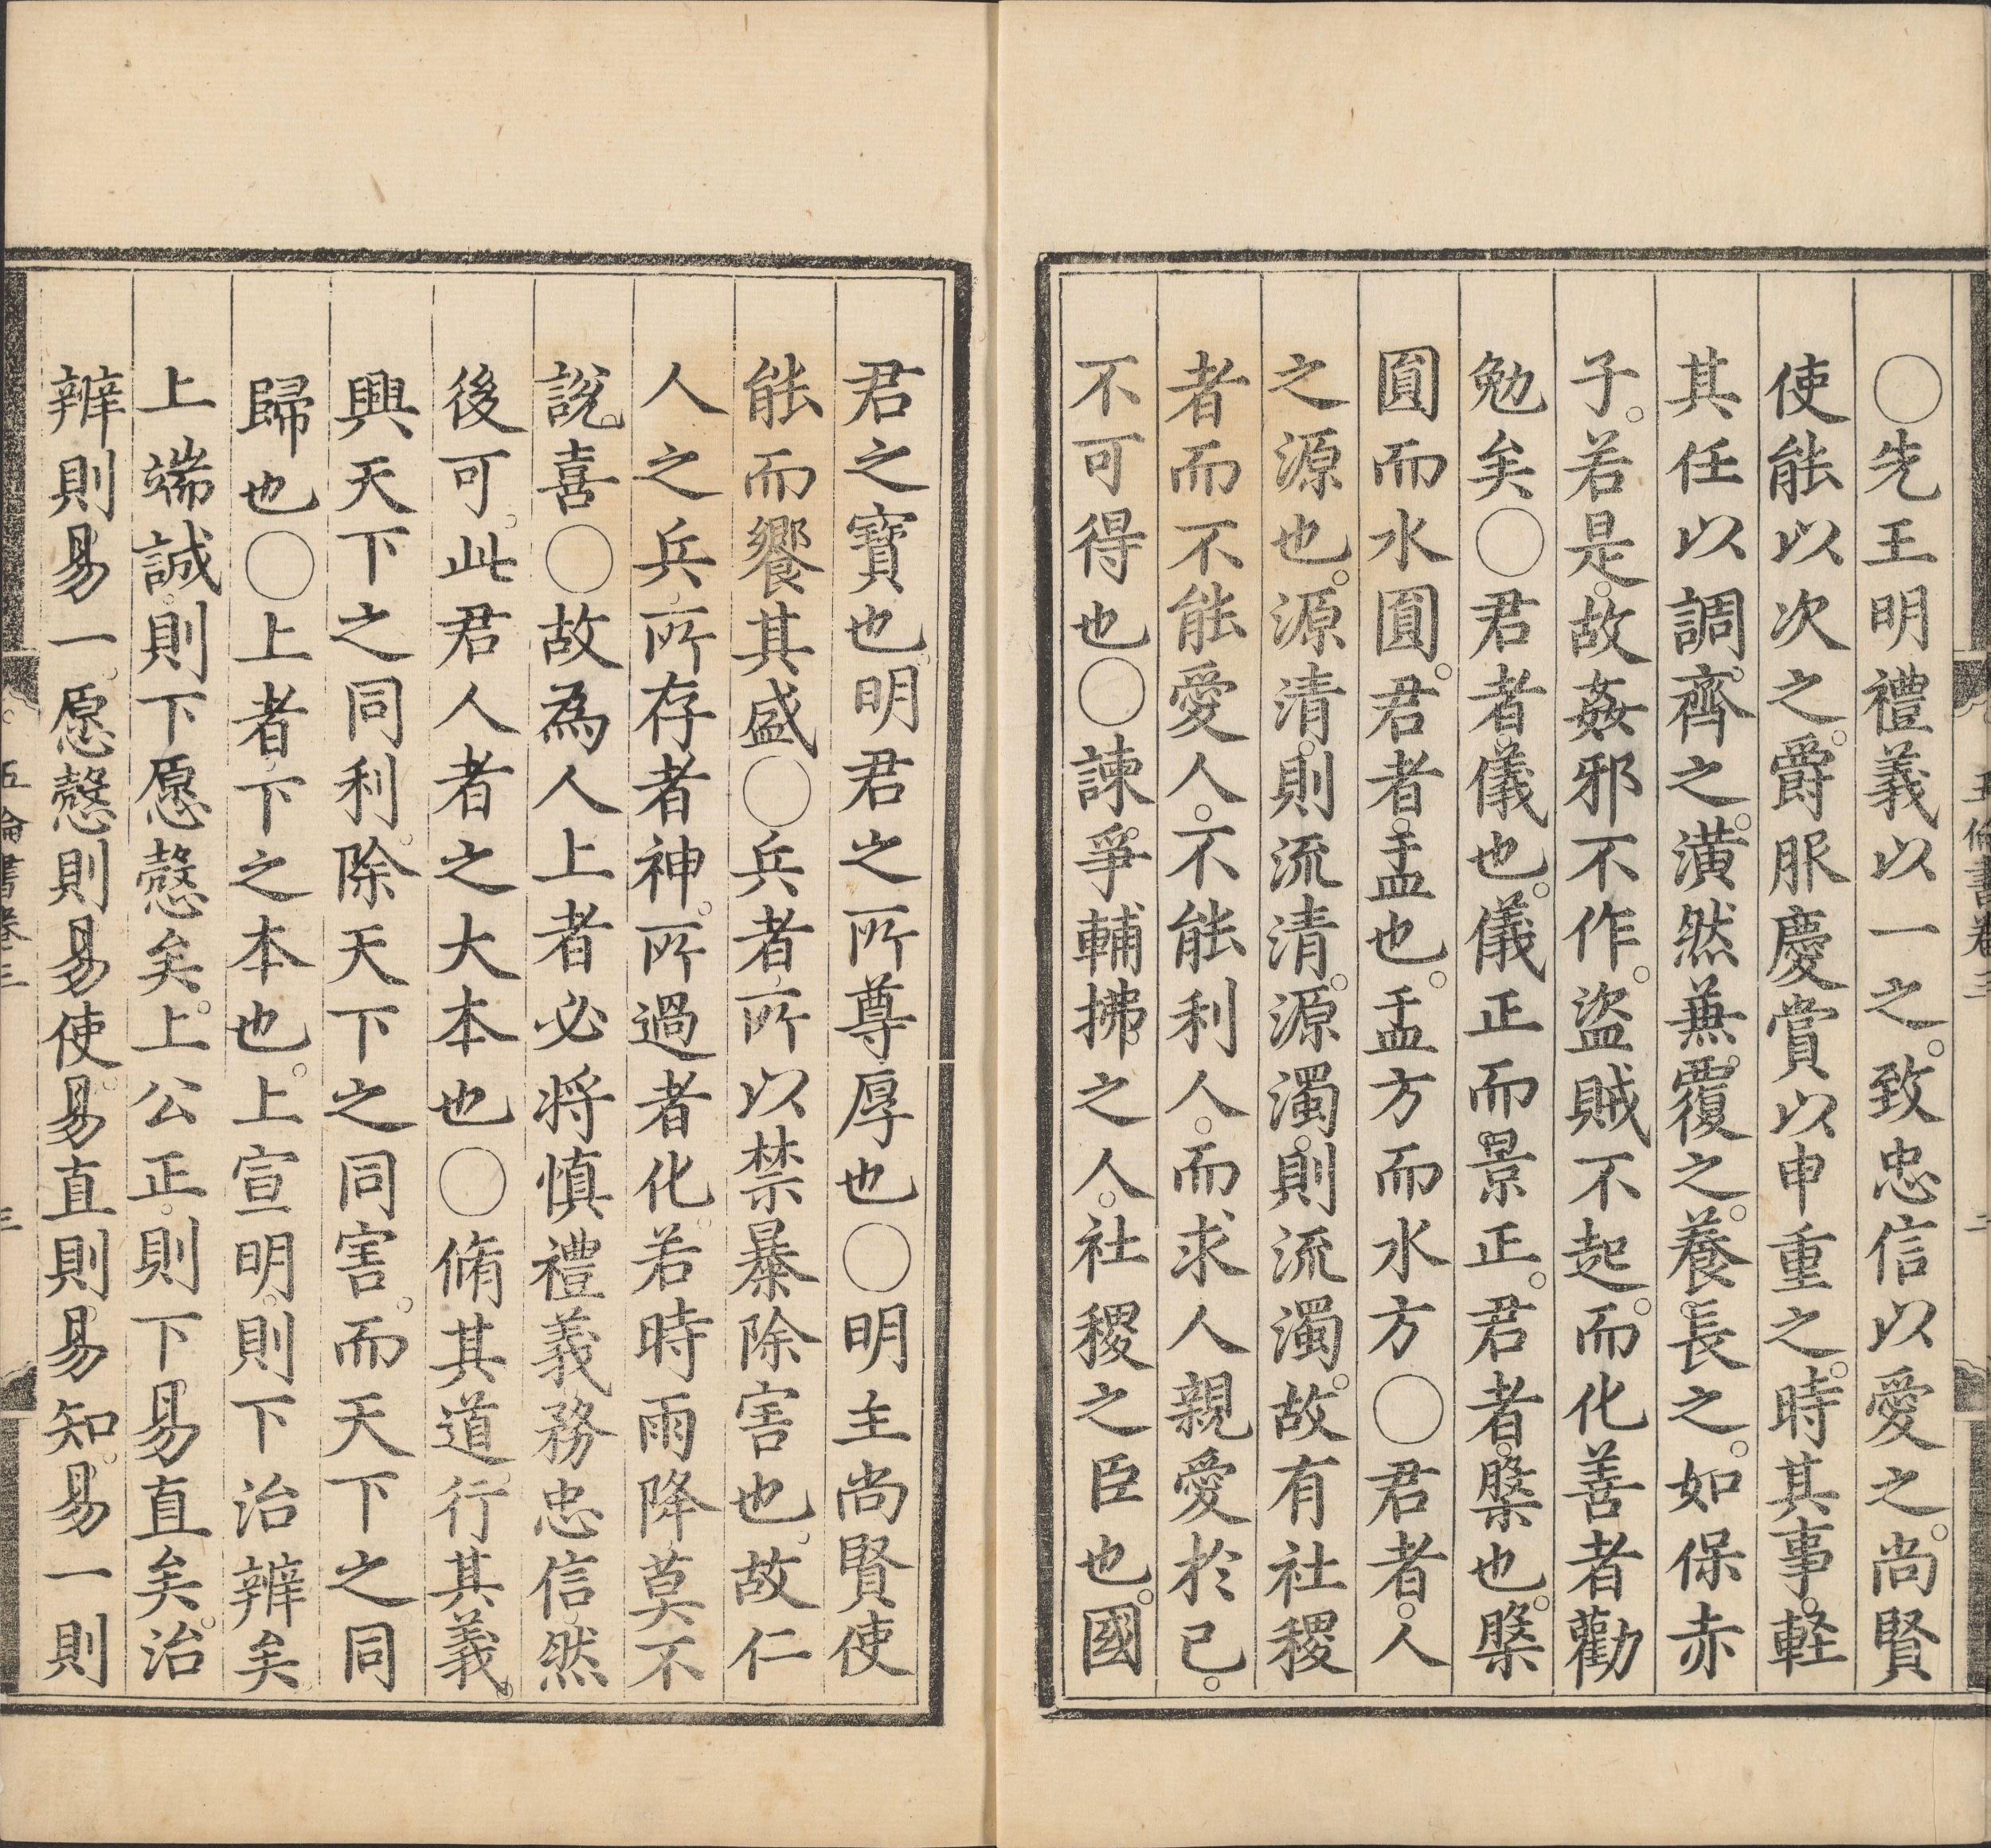 ○先王明禮義以一之。致忠信以愛之。尚賢
使能以次之。爵服慶賞以申重之。時其事。軽
其任以調齊之。潢然兼覆之。養長之。如保赤
子。若是。故姦邪不作。盜賊不起。而化善者勸
勉矣○君者儀也。儀正而景正。君者槃也。槃
圎而水圎。君者盂也。盂方而水方○君者。人
之源也。源清。則流清。源濁。則流濁。故有社稷
者而不能愛人。不能利人。而求人親愛於己。
不可得也○諫爭輔拂之人。社稷之臣也。國
君之寶也。明君之所尊厚也○明主尚賢使
能而饗其盛○兵者。所以禁暴除害也。故仁
人之兵。所存者神。所過者化。若時雨降。莫不
說。喜○故為人上者必将慎禮義務忠信。然
後可。此君人者之大本也○脩其道。行其義。
興天下之同利。除天下之同害。而天下之同
歸也○上者。下之本也。上宣明。則下治辨矣。
上端誠。則下愿慤矣。上公正。則下易直矣。治
辨則易一。愿慤則易使。易直則易知。易一則
五倫書卷三
二
五倫書卷三
三